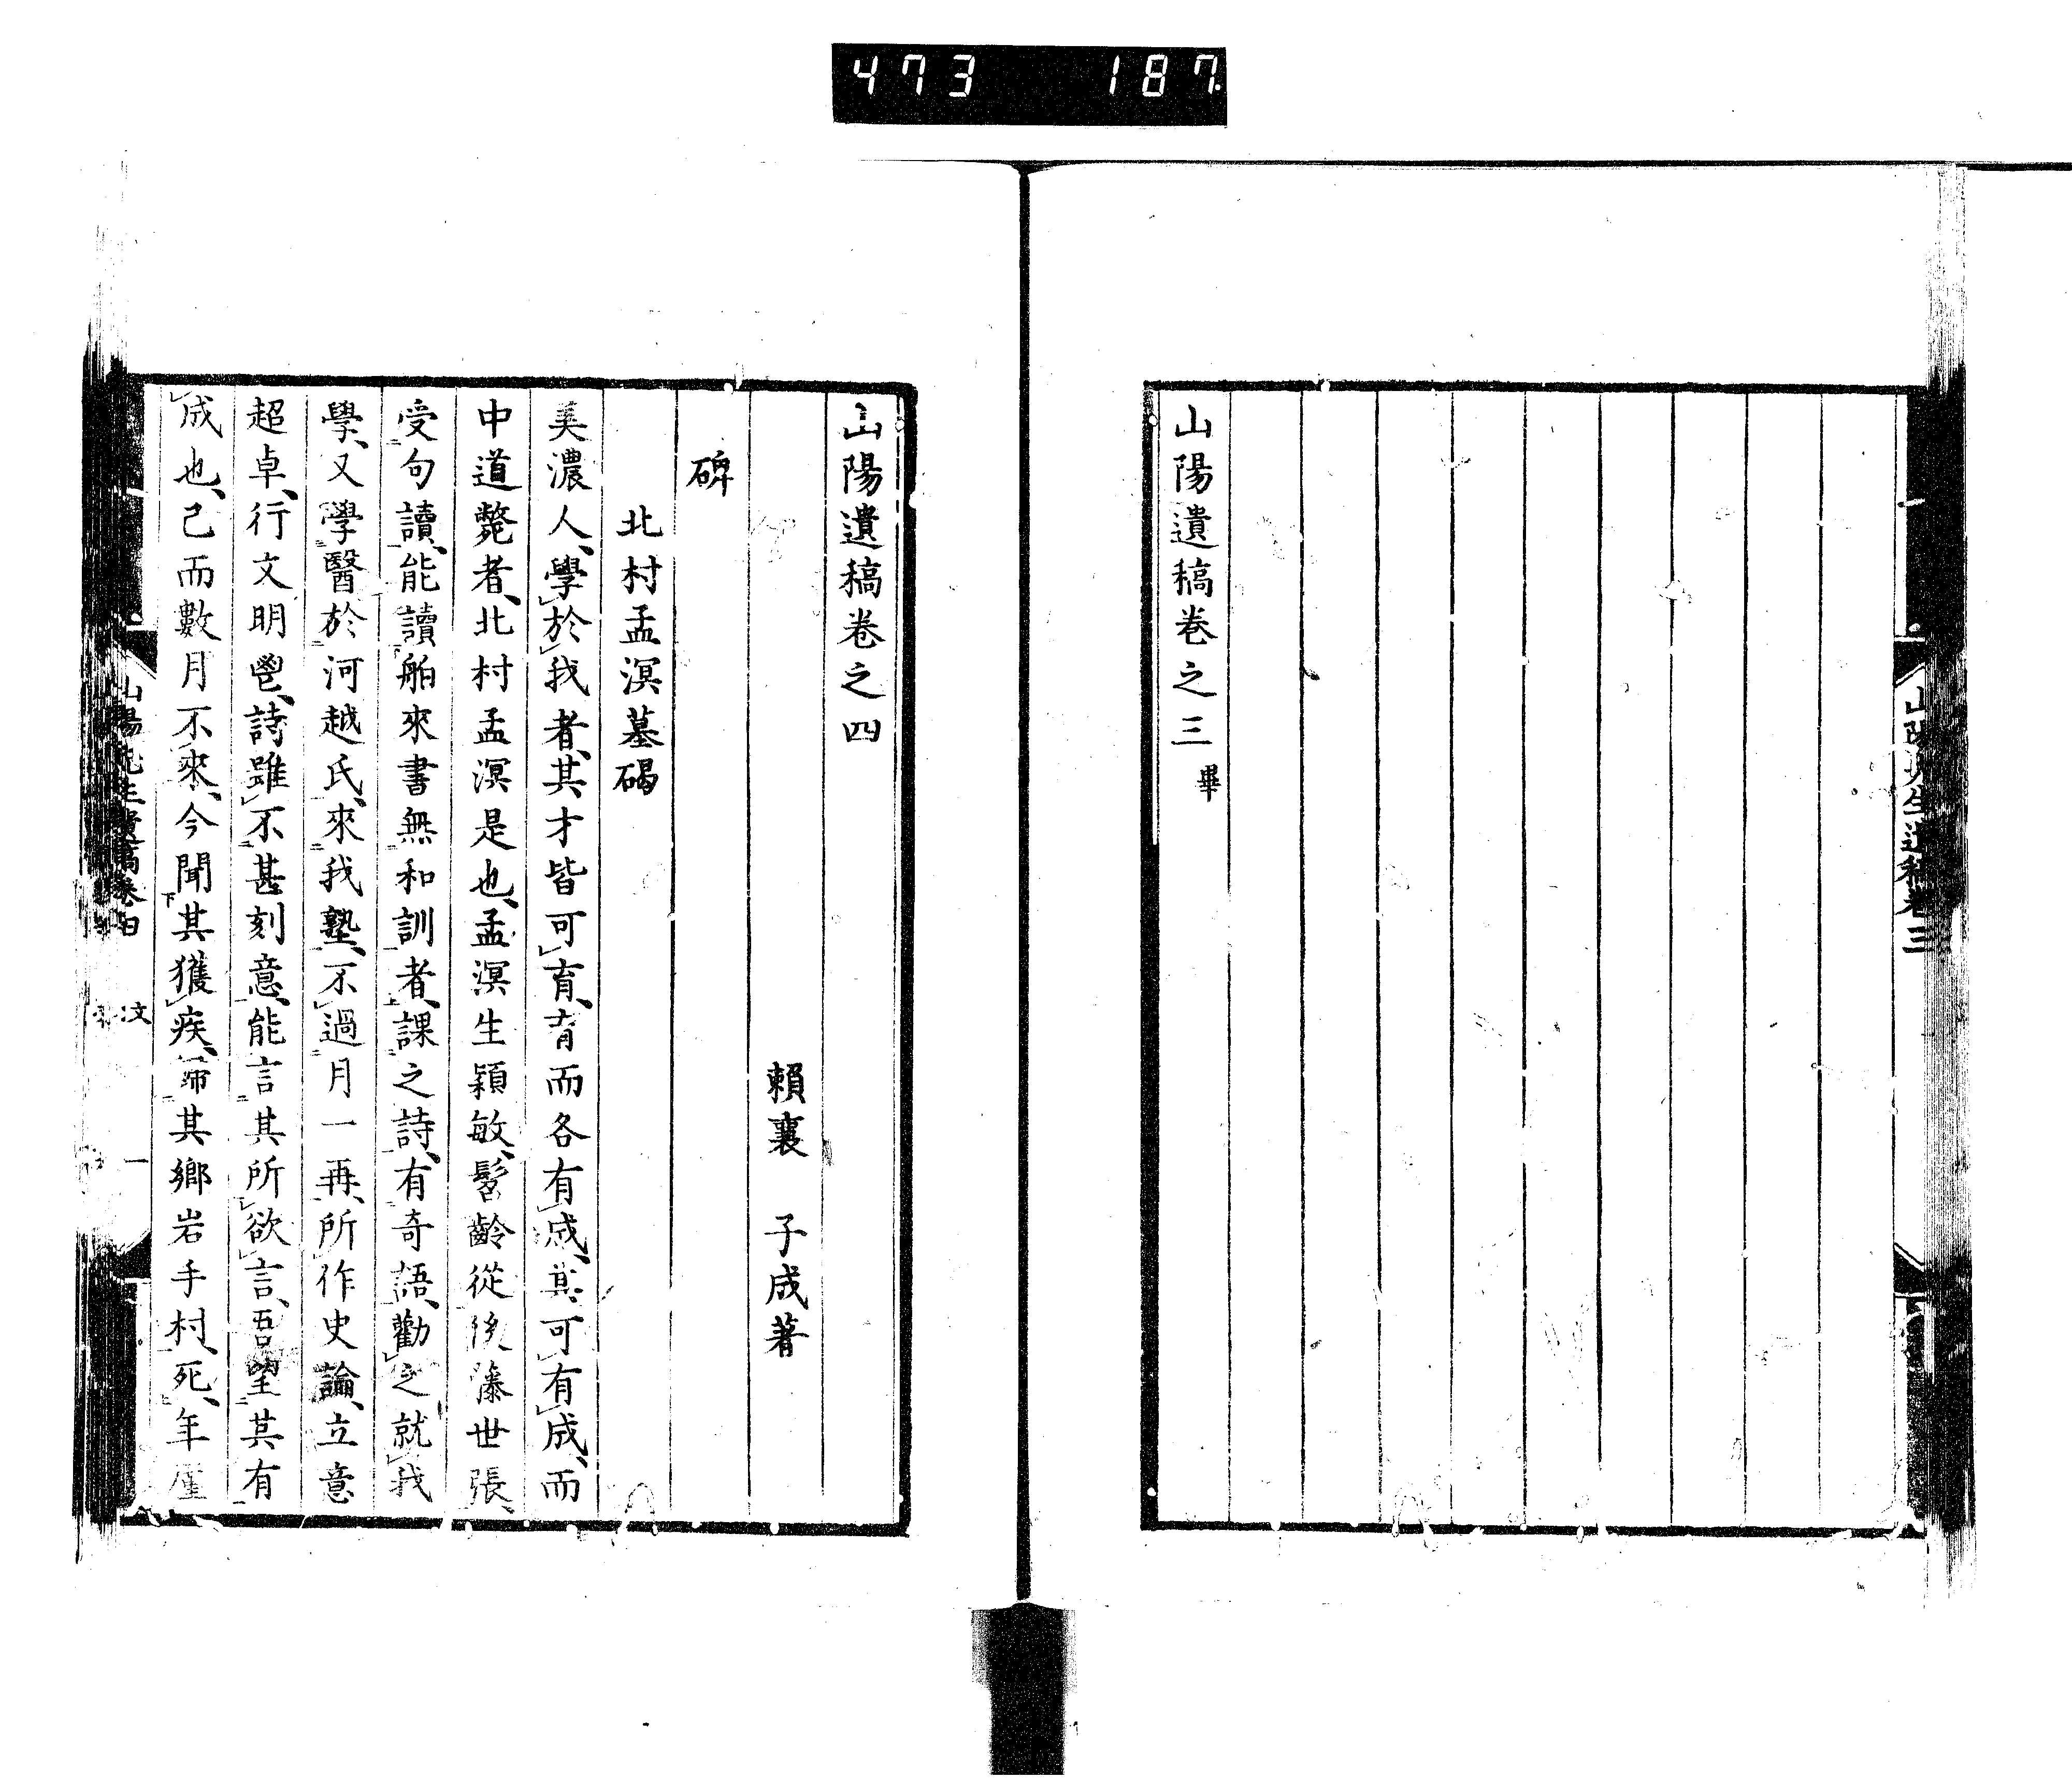 473 187
山陽遺稿卷之三 畢
山陽先生遺稿卷三
山陽遺稿卷之四
賴襄 子成著
碑
北村孟溟墓碣
美濃人、學於我者、其才皆可育、育而各有成、其可有成、而
中道斃者、北村孟溟是也、孟溟生穎敏、髫齡從後藤世張、
受句讀、能讀舶來書無和訓者、課之詩、有奇語、勸之就我
學、又學醫於河越氏、來我塾、不過月一再、所作史論、立意
超卓、行文明鬯、詩雖不甚刻意、能言其所欲言、吾望其有
成也、已而數月不來、今聞其獲疾、歸其鄉岩手村、死、年廑
山陽先生遺稿卷四 文 一